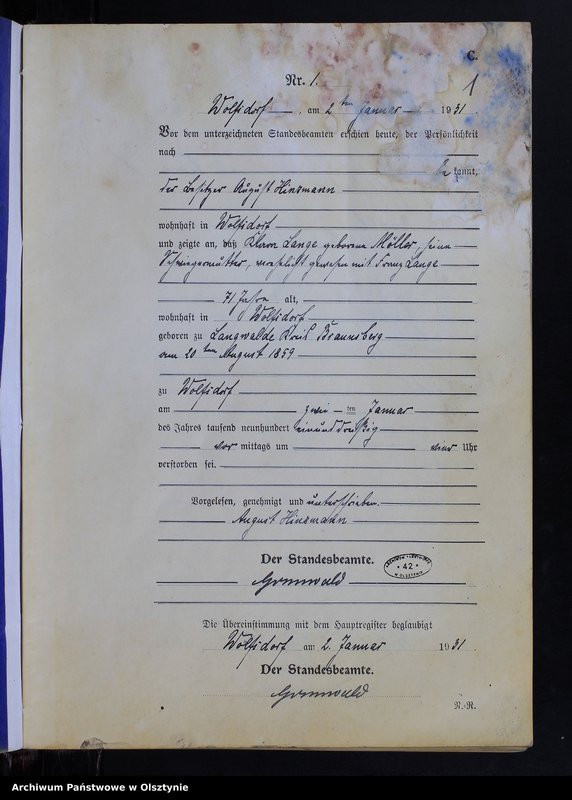 C.
Nr. 1.
1
Wolfsdorf, am 2ten Januar 1931.
Vor dem unterzeichneten Standesbeamten erschien heute, der Persönlichkeit
nach
bekannt,
der Besitzer August Hinzmann
wohnhaft in Wolfsdorf
und zeigte an, daß Klara Lange geborene Möller, seine
Schwiegermutter, verehelicht gewesen mit Franz Lange
71 Jahre alt,
wohnhaft in Wolfsdorf
geboren zu Langwalde Kreis Braunsberg
am 20ten August 1859
zu Wolfsdorf
am zwei ten Januar
des Jahres tausend neunhundert einunddreißig
vor mittags um vier Uhr
verstorben sei.
Vorgelesen, genehmigt und unterschrieben.
August Hinzmann
Der Standesbeamte.
Grunwald
42
Die Übereinstimmung mit dem Hauptregister beglaubigt
Wolfsdorf am 2. Januar 1931
Der Standesbeamte.
Grunwald
N.-R.
Archiwum Państwowe w Olsztynie